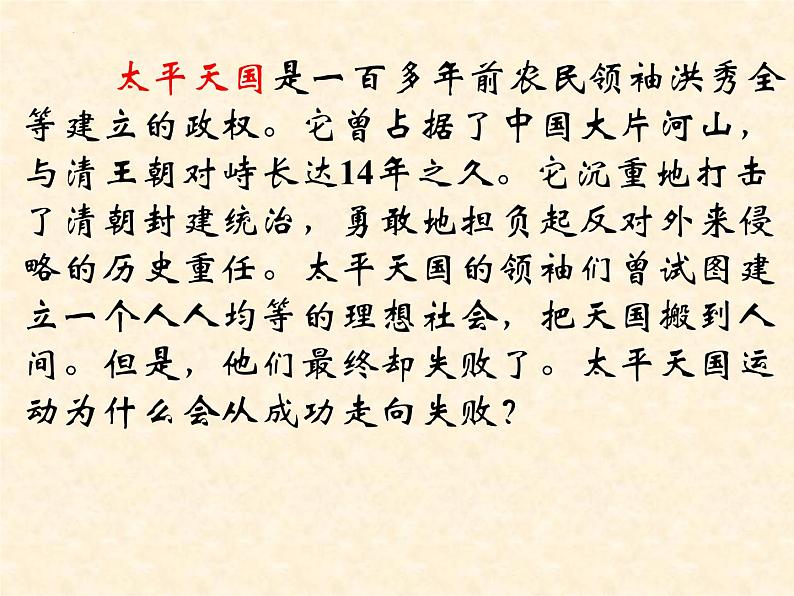 太平天国是一百多年前农民领袖洪秀全
等建立的政权。它曾占据了中国大片河山，
与清王朝对峙长达14年之久。它沉重地打击
了清朝封建统治，勇敢地担负起反对外来侵
略的历史重任。太平天国的领袖们曾试图建
立一个人人均等的理想社会，把天国搬到人
间。但是，他们最终却失败了。太平天国运
动为什么会从成功走向失败？